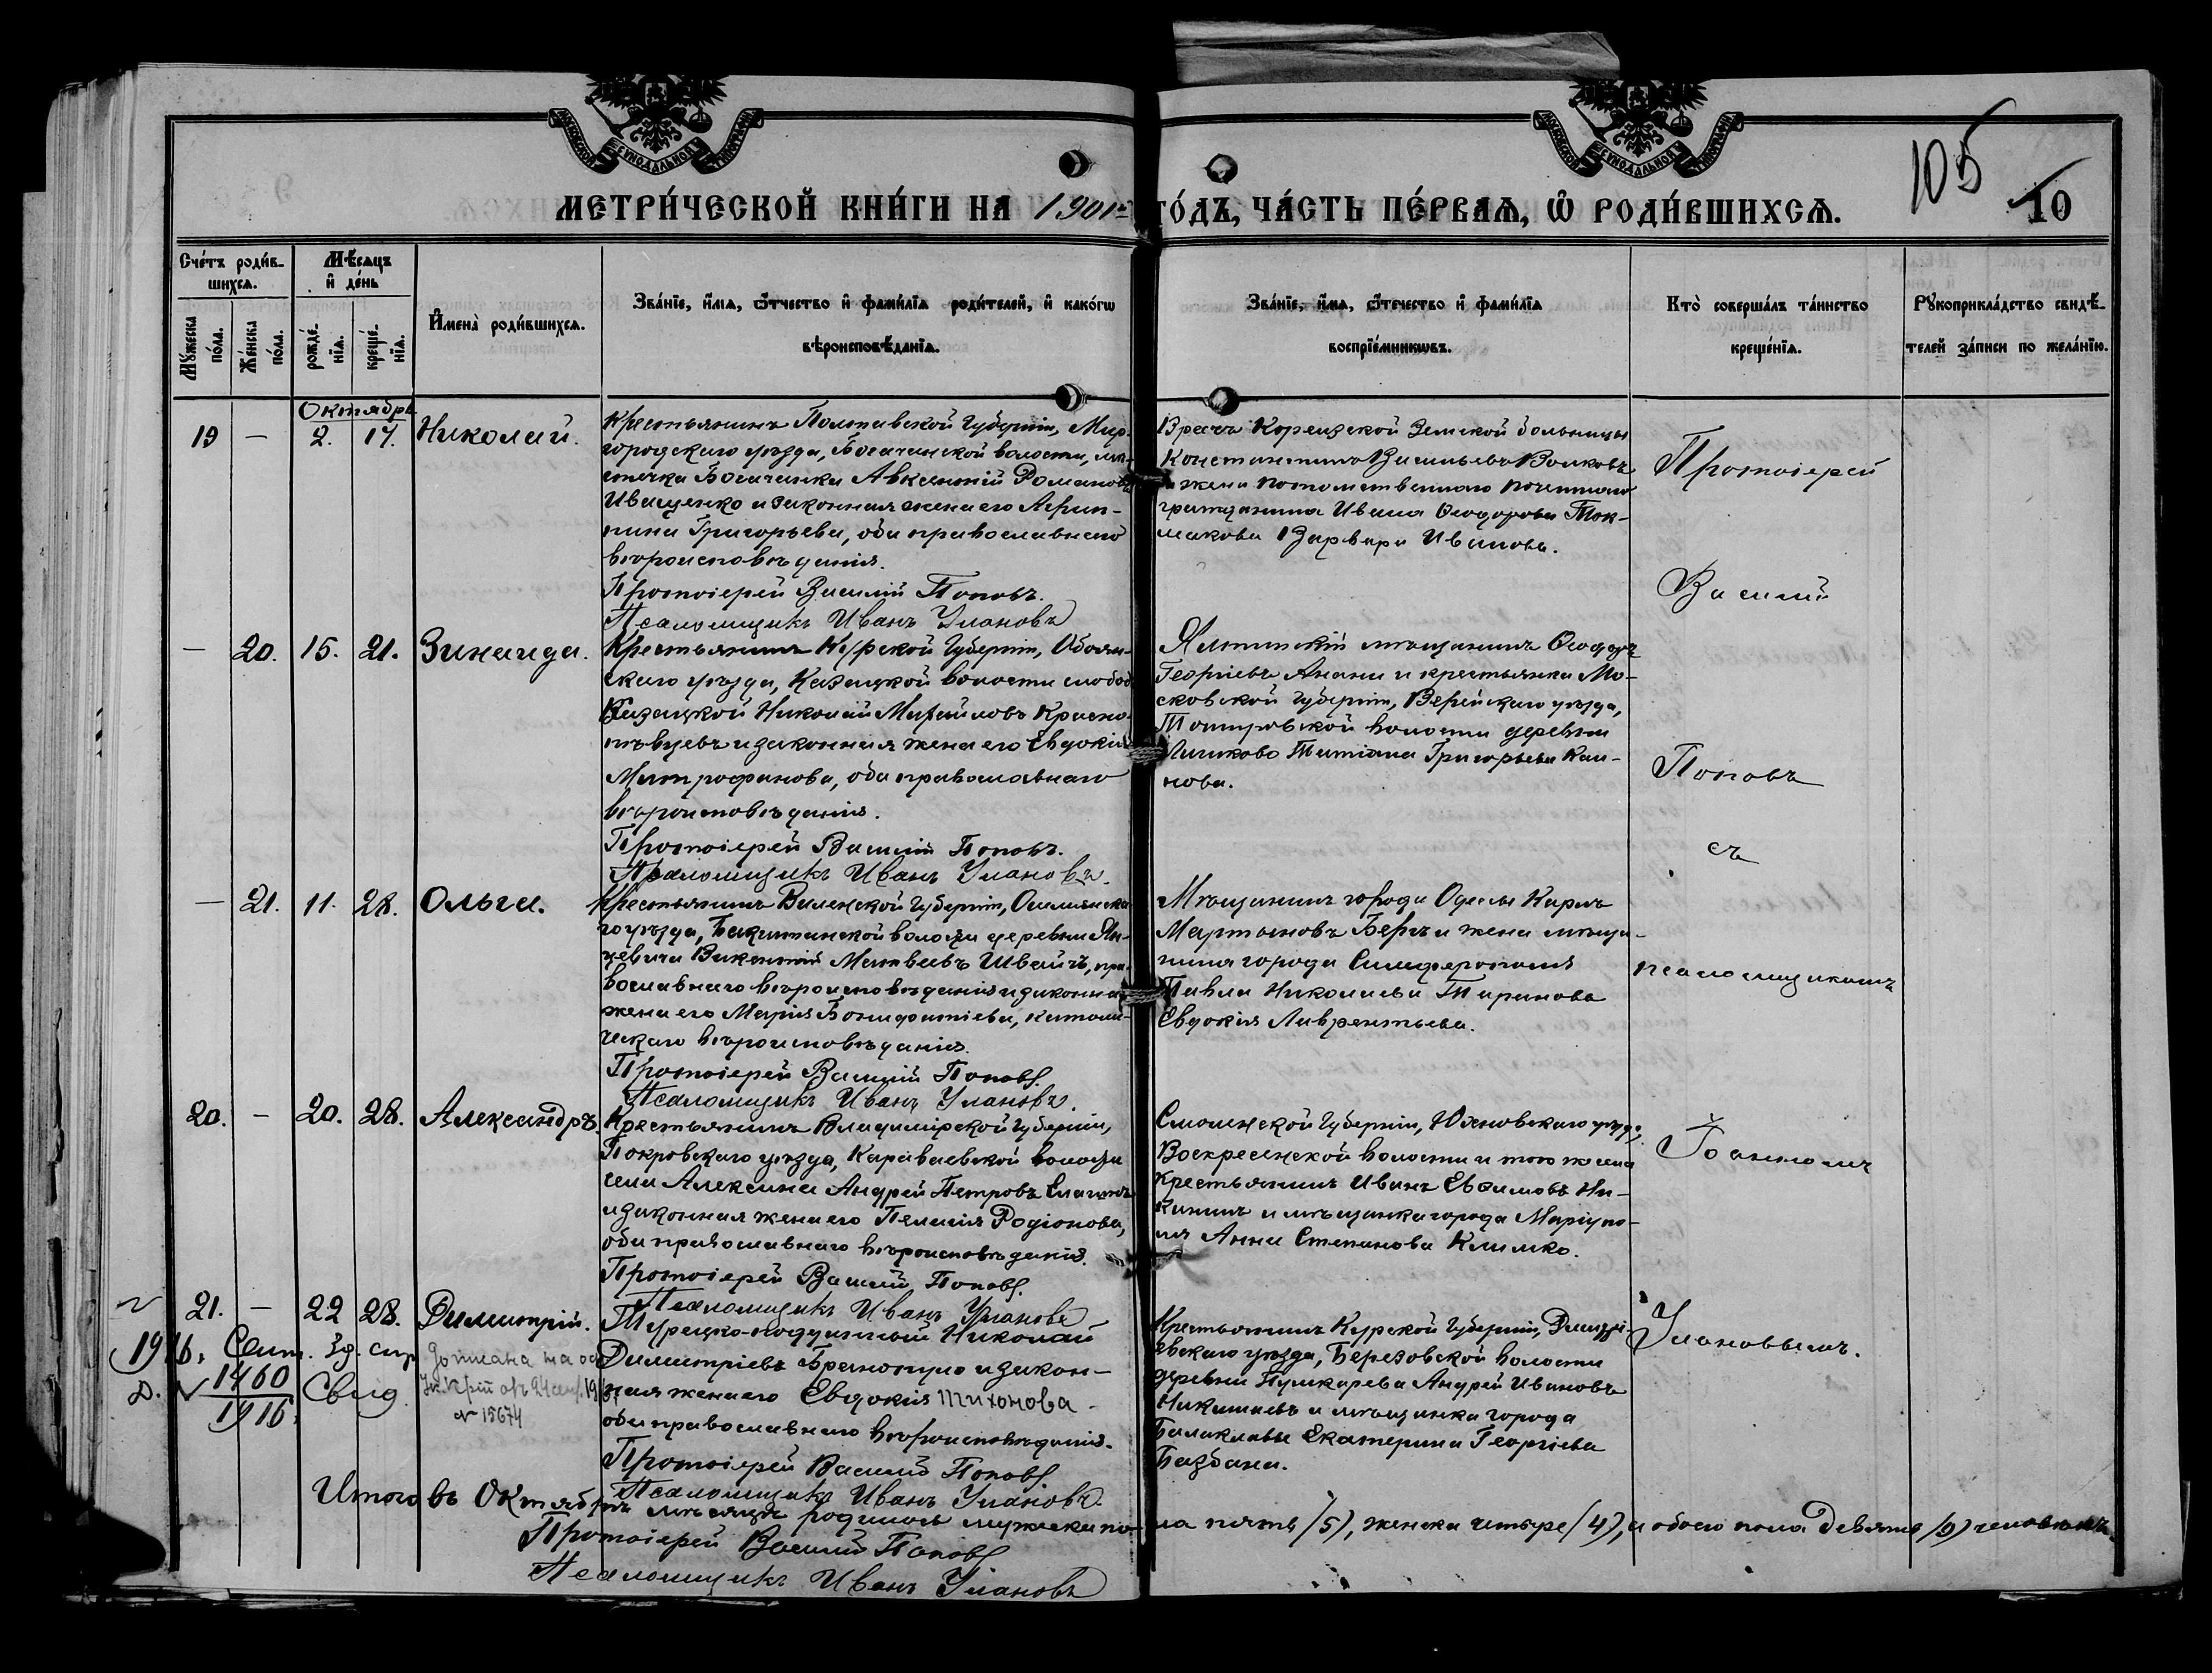 МОСКОВСКОЙ СѴНОДАЛЬНОЙ ТИПОГРАФІИ
МОСКОВСКОЙ СѴНОДАЛЬНОЙ ТИПОГРАФІИ
105
10
МЕТРИ́ЧЕСКОЙ КНИ́ГИ НА 1901й ГО́ДЪ, ЧА́СТЬ ПЕ́РВАѦ, Ѡ҆ РОДИ́ВШИХСѦ.
Сче́тъ роди́в-
шихсѧ.
Мꙋ́жеска по́ла.
Же́нска по́ла.
Мѣ́сѧцъ
и҆ де́нь
рожде́-
нїѧ.
креще́-
нїѧ.
И҆мена̀ роди́вшихсѧ.
Зва́нїе, и҆́мѧ, ѻ҆́тчество и҆ фами́лїѧ роди́телей, и҆ како́гѡ
вѣроисповѣ́данїѧ.
Зва́нїе, и҆́мѧ, ѻ҆́тчество и҆ фами́лїѧ
воспрїе́мникѡвъ.
Кто̀ соверша́лъ та́инство
креще́нїѧ.
Рꙋкоприкла́дство свидѣ́-
телей за́писи по жела́нїю.
Октябрь
19 — 2. 17. Николай.
Крестьянинъ Полтавской Губерніи, Мир-
городскаго уѣзда, Богачанской волости, мѣ-
стечка Богачанка Авксентій Романовъ
Иващенко и законная жена его Агрип-
пина Григорьева, оба православнаго
вѣроисповѣданія.
Протоіерей Василій Поповъ.
Псаломщикъ Иванъ Улановъ
Врачъ Кореизской Земской больницы
Константинъ Васильевъ Волковъ
и жена потомственнаго почетнаго
гражданина Ивана Ѳеодорова Ток-
макова Варвара Иванова.
— 20. 15. 21. Зинаида.
Крестьянинъ Курской Губерніи, Обоян-
скаго уѣзда, Казацкой волости слобод
Казацкой Николай Михайловъ Красно-
пѣвцевъ и законная жена его Евдокія
Митрофанова, оба православнаго
вѣроисповѣданія.
Протоіерей Василій Поповъ.
Псаломщикъ Иванъ Улановъ.
Ялтинскій мѣщанинъ Ѳеодоръ
Георгіевъ Анани и крестьянка Мо-
сковской Губерніи, Верейскаго уѣзда,
волости деревни
Татіана Григорьева
нова.
— 21. 11. 28. Ольга.
Крестьянинъ Виленской Губерніи, Ошмянска-
го уѣзда, Бакштанской волости деревни Ян-
цевичи Викентій Матвеевъ Швайчъ, пра-
вославнаго вѣроисповѣданія и законная
жена его Марія Бонифатіева, католи-
ческаго вѣроисповѣданія.
Протоіерей Василій Поповъ.
Псаломщикъ Иванъ Улановъ.
Мѣщанинъ города Одессы Карлъ
Мартыновъ Бергъ и жена мѣща-
нина города Симферополя
Павла Николаева Таранова
Евдокія Лаврентьева.
20. — 20. 28. Александръ.
Крестьянинъ Владимірской Губерніи,
Покровскаго уѣзда, Караваевской волости
села Алексина Андрей Петровъ
и законная жена его Пелагія Родіонова,
оба православнаго вѣроисповѣданія.
Протоіерей Василій Поповъ.
Псаломщикъ Иванъ Улановъ
Смоленской Губерніи, Юхновскаго уѣзда,
Воскресенской волости и того же села
крестьянинъ Иванъ Евѳимовъ Ни-
кинъ и мѣщанка города Маріупо-
ля Анна Степанова Климко.
21. — 22 28. Димитрій.
Турецко-подданный Николай
Димитріевъ и закон-
ная жена его Евдокія Тихонова -
оба православнаго вѣроисповѣданія.
Протоіерей Василій Поповъ
Псаломщикъ Иванъ Улановъ.
Крестьянинъ Курской Губерніи, Дмитрі-
евскаго уѣзда, Березовской волости
деревни Пушкарева Андрей Ивановъ
Никитаевъ и мѣщанка города
Балаклавы Екатерина Георгіева
Базбана.
1916. Сент. 3д.
Д. 1460 Свид
1916.
дописана на ос
№ 15674
Протоіерей
Василій
Поповъ
съ
псаломщикомъ
Іоанномъ
Улановымъ.
Итого въ Октябрѣ мѣсяцѣ родилось мужеска по-ла пять /5/, женска четыре /4/, и обоего пола девять /9/ человѣкъ
Протоіерей Василій Поповъ
Псаломщикъ Иванъ Улановъ